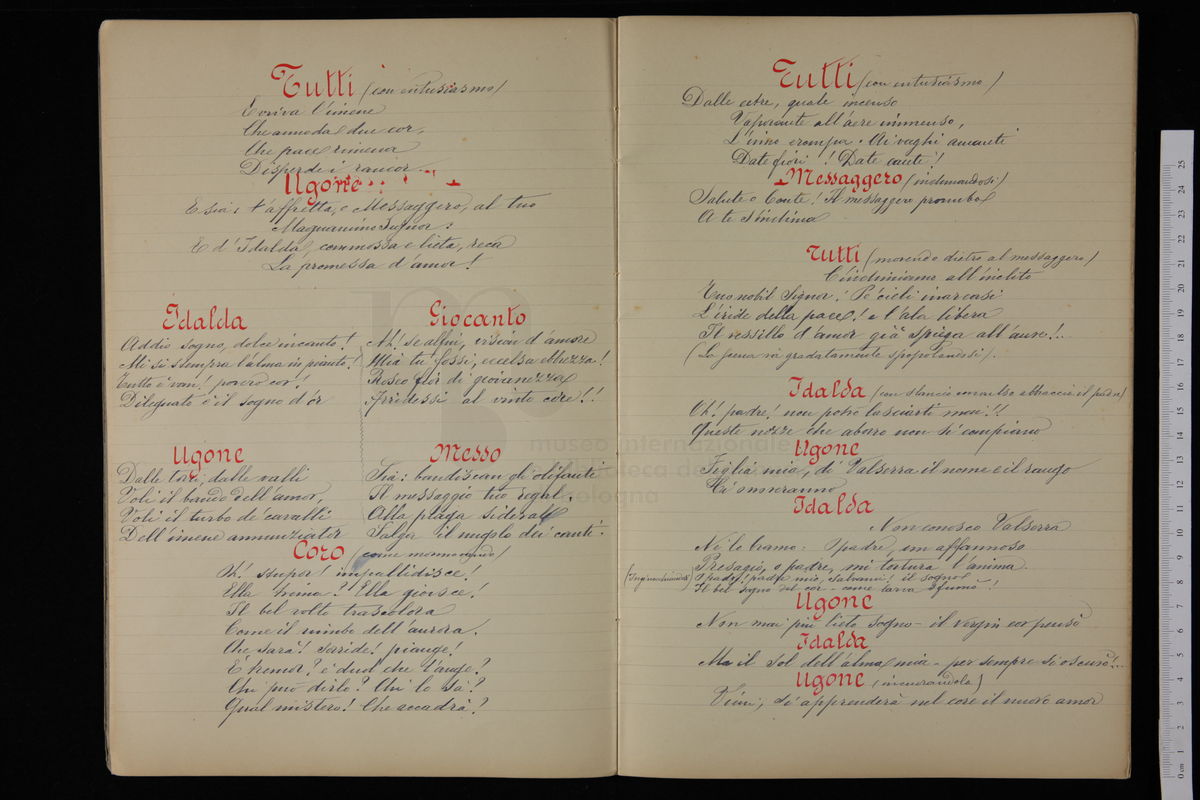 Tutti (con entusiasmo)
Evviva l'imene
Che annoda due cor,
Che pace rimena
Disperde i rancor...
Ugone
E sia: t'affretta, o Messaggero, al tuo
Magnanimo Signor:
E d'Idalda, commossa e lieta, reca
La promessa d'amor!
Idalda
Addio sogno, dolce incanto!
Mi si stempra l'alma in pianto!
Tutto è van! povero cor!
Dileguato è il sogno d'or
Giocanto
Ah! se alfin, vision d'amore
Mia tu fossi, eccelsa ebbrezza!
Roseo fior di giovanezza
Arridessi al vinto core!!
Ugone
Dalle torri, dalle valli
Voli il bando dell'amor,
Voli il turbo de' cavalli
Dell'imene annunziator
Messo
Sia: bandiscan gli olifanti
Il messaggio tuo regal,
Alla plaga sideral
Salga il nugolo dei canti!
Coro (come mormorando)
Oh! stupor! impallidisce!
Ella trema? Ella gioisce!
Il bel volto trascolora
Come il nimbo dell'aurora.
Che sarà! Sorride! piange!
È tremor? è duol che l'ange?
Chi può dirlo? Chi lo sa?
Qual mistero! Che accadrà?
Tutti (con entusiasmo)
Dalle cetre, quale incenso
Vaporante all'aere immenso,
L'inno erompa. Ai vaghi amanti
Date fiori! Date canti!
Messaggero (inchinandosi)
Salute o Conte! Il messaggero pronubo
A te s'inchina
Tutti (movendo dietro al messaggero)
C'inchiniamo all'inclito
Tuo nobil Signor! Pe' cieli inarcasi
L'iride della pace! e l'ala libera
Il vessillo d'amor già spiega all'aure!..
(La scena va gradatamente spopolandosi).
Idalda (con slancio convulso abbraccia il padre)
Oh! padre! non potrò lasciarti mai!!
Queste nozze che aborro non si compiano
Ugone
Figlia mia, di Valserra il nome e il rango
Idalda
Non conosco Valserra
Nè lo bramo: O padre, un affannoso
Presagio, o padre, mi tortura l'anima.
(Inginocchiandosi) O padre! padre mio, salvami! il sogno
Il bel sogno del cor - come larva sfumò!
Ugone
Non mai più lieto sogno - il vergin cor pensò
Idalda
Ma il sol dell'alma mia - per sempre si oscurò!...
Ugone (incuorandola)
Vieni, s'apprenderà nel core il nuovo amor
museo internazionale
e biblioteca della
di bologna
0 cm 1 2 3 4 5 6 7 8 9 10 11 12 13 14 15 16 17 18 19 20 21 22 23 24 25